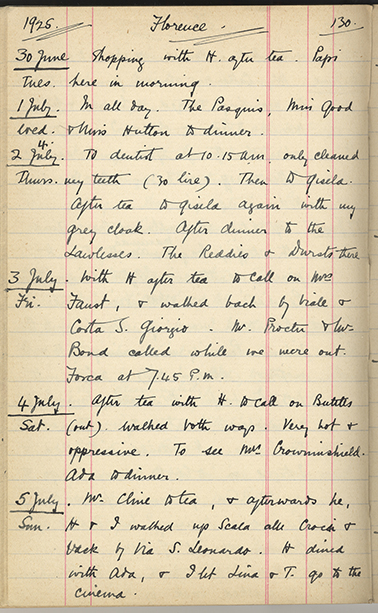 1925. Florence. 130.
30 June Shopping with H. after tea. Papi
Tues. here in morning.
1 July. In all day. The Pasquis, Miss Good
Wed. & Miss Hutton to dinner.
2 July. To dentist at 10.15 a.m. only cleaned
Thurs. my teeth (30 lire). Then to Gisela.
After tea to Gisela again with my
grey cloak. After dinner to the
Lawlesses. The Reddies & Dursts there
3 July. With H after tea to call on Mrs
Fri. Faust, & walked back by Viale &
Costa S. Giorgio. Mr. Procter & Mr
Bond called while we were out.
Forca at 7.45 P.m.
4 July. After tea with H. to call on Buttles
Sat. (out). Walked both ways. Very hot &
oppressive. To see Mrs Crowninshield.
Ada to dinner.
5 July. Mr Cline to tea, & afterwards he,
Sun. H & I walked up Scala alle Croci &
back by Via S. Leonardo. H dined
with Ada, & I let Lina & T. go to the
cinema.